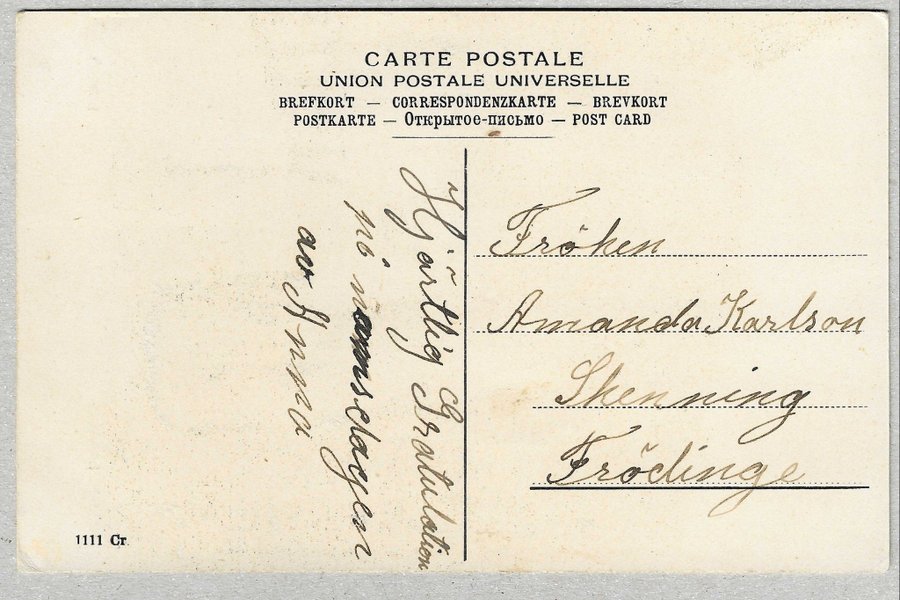 CARTE POSTALE
UNION POSTALE UNIVERSELLE
BREFKORT — CORRESPONDENZKARTE — BREVKORT
POSTKARTE — Открытое-письмо — POST CARD
Hjärtlig Gratulation
på namsdagen
av Anna
Fröken
Amanda Karlson
Skenning
Frödinge
1111 Cr.